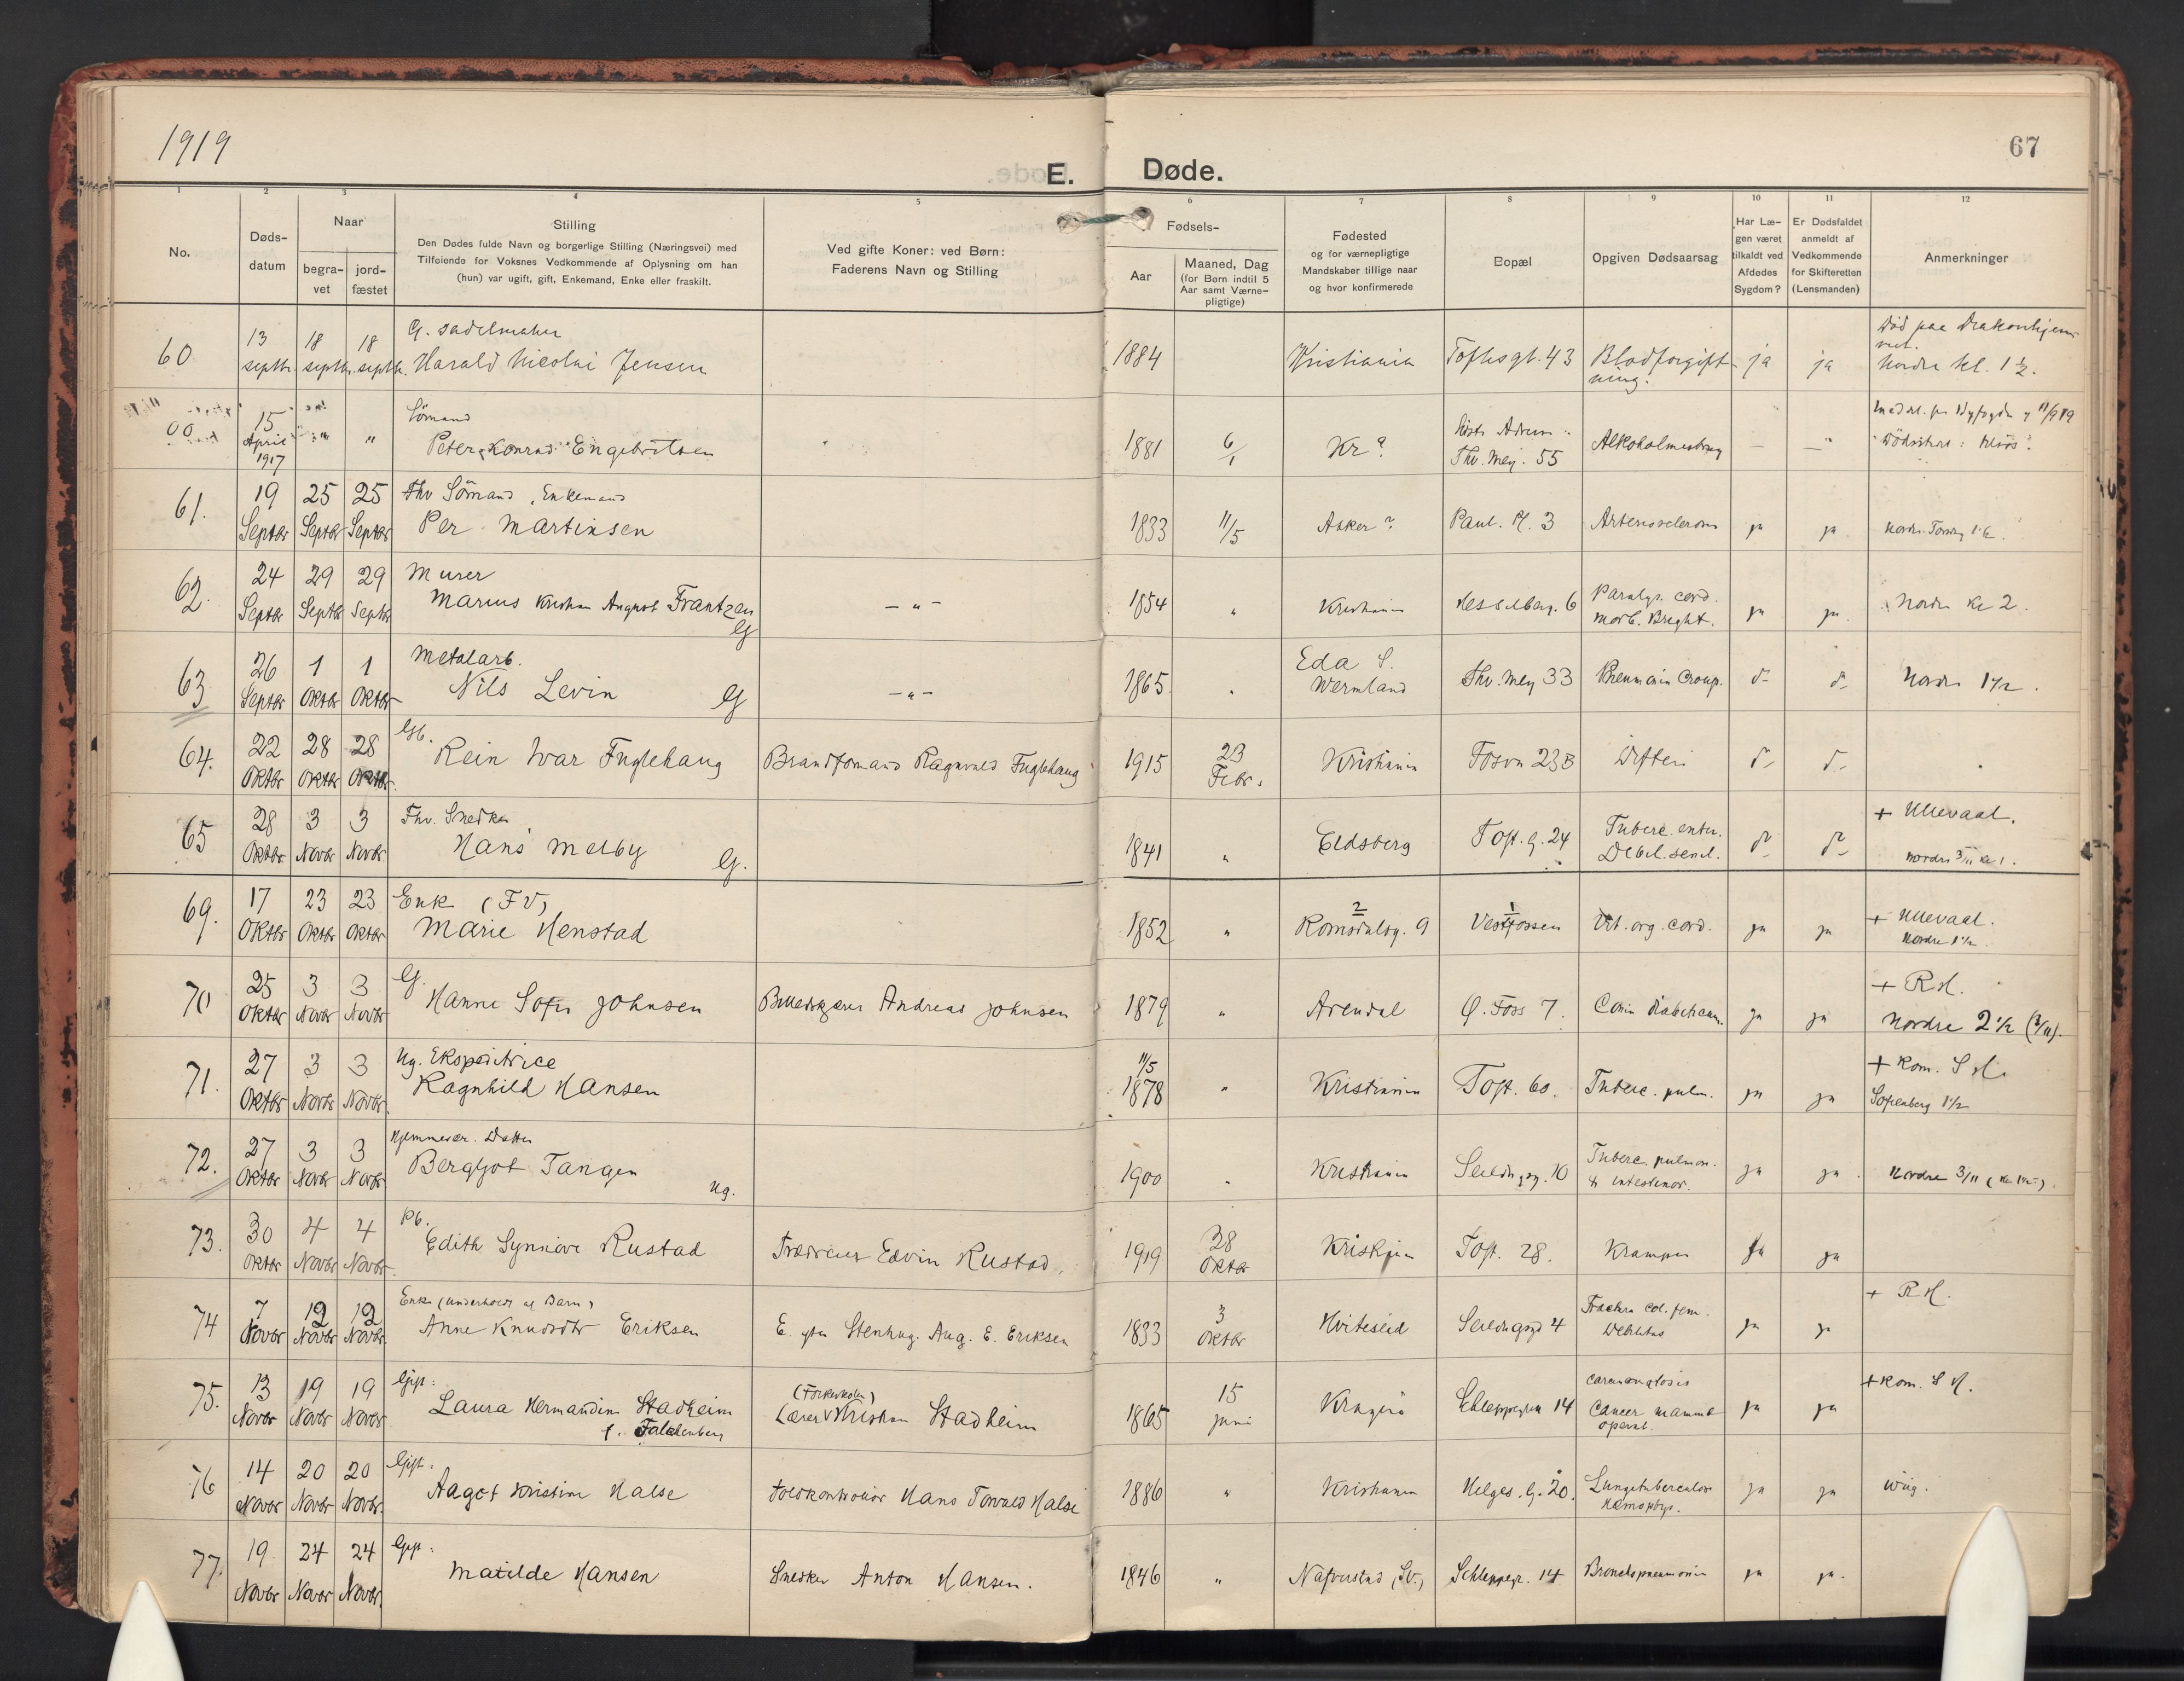 1919
67
E. Døde.
1 2 3 4 5 6 7 8 9 10 11 12
No.
Døds-
datum
Naar
begra-
vet
jord-
fæstet
Stilling
Den Dødes fulde Navn og borgerlige Stilling (Næringsvei) med
Tilføiende for Voksnes Vedkommende af Oplysning om han
(hun) var ugift, gift, Enkemand, Enke eller fraskilt.
Ved gifte Koner: ved Børn:
Faderens Navn og Stilling
Fødsels-
Aar
Maaned, Dag
(for Børn indtil 5
Aar samt Værne-
pligtige)
Fødested
og for værnepligtige
Mandskaber tillige naar
og hvor konfirmerede
Bopæl
Opgiven Dødsaarsag
Har Læ-
gen været
tilkaldt ved
Afdødes
Sygdom?
Er Dødsfaldet
anmeldt af
Vedkommende
for Skifteretten
(Lensmanden)
Anmerkninger
13 18 18 G. Sadelmaker
60 septbr. septbr. septbr. Harald Nicolai Jensen 1884 Kristiania Toftesgt. 43 Blodforgift-
ning. ja ja Nordre kl. 1 1/2.
15 Sömand
April " " Peter Konrad Engebritsen 1881 6/1 Kr? Thv. Mey. 55 — —
1917
19 25 25 Fhv Sömand, Enkemand
61. Septbr Septbr Septbr Per Martinsen 1833 11/5 Asker? Paul. Pl. 3 ja ja
24 29 29 Murer
62. Septbr Septbr Septbr Marius Kristian August Frantzen — " — 1854 " Kristiania Hesselberg. 6 Paralys. cord.
G morb. Bright. ja ja. Nordre Kl 2.
26 1 1 Metalarb.
63 Septbr Oktbr Oktbr Nils Levin G — " — 1865 " Eda S.
Wermland Thv. Mey 33 Pneumonia Croup. d- d- Nordre 1 1/2.
22 28 28 Gb.
64. Oktbr Oktbr Oktbr. Rein Ivar Fuglehaug Brandfomand Ragnvald Fuglehaug 1915 23
Febr. Kristiania Fosvn 23B Difteri d- d-
28 3 3 Fhv. Snedker
65 Oktbr Novbr Novbr Hans Melby G. 1841 " Eidsberg Toft. g. 24 Tuberc. enter.
Debil. senil. d- d- + Ullevaal.
Nordre 3/11 Kl 1.
17 23 23 Enke (FV)
69. Oktbr Oktbr Oktbr Marie Henstad 1852 " 2
Romsdalsg. 9 1
Vestfossen Vit. org. cord. ja ja + Ullevaal.
Nordre 1 1/2
25 3 3 G.
70 Oktbr Novbr Novbr Hanne Sofie Johnsen Billedskjærer Andreas Johnsen 1879 " Arendal Ø. Foss 7. Coma diabeticum. ja ja + R.H.
Nordre 2 1/2 (3/11).
27 3 3 Ug. Ekspeditrice
71. Oktbr Novbr Novbr. Ragnhild Hansen 11/5
1878 " Kristiania Toft. 60. Tuberc. pulm. ja ja + Kom. S H.
Sofienberg 1 1/2
27 3 3 Hjemmevær. Datter
72. Oktbr Novbr Novbr Bergljot Tangen ug. 1900 " Kristiania 10 Tuberc. pulmon.
& intestinor. ja ja. Nordre 3/11
30 4 4 Pb.
73. Oktbr Novbr Novbr. Edith Synnöve Rustad Edvin Rustad. 1919 28
Oktbr Kristania Toft. 28. Kramper ja ja
7 12 12 Enke (underholdt af Barn)
74 Novbr Novbr Novbr. Anne Knudsdtr Eriksen E. efter Stenhug. Aug. E. Eriksen 1833 3
Oktbr Hviteseid 4 Fractura col. fem.
Debilitas ja ja + R.H.
13 19 19 Gift:
75. Novbr Novbr Novbr. Laura Hermandine Stadheim
f. Falckenberg (Folkeskolen)
Lærer Kristian Stadheim 1865 15
juni Kragerö Schleppegrm 14 Carcinomatosis
Cancer mammæ
operat. ja ja + Kom. S H.
14 20 20 Gift:
76 Novbr Novbr Novbr. Aagot Kristine Halse Toldkontrollör Hans Torvald Halse 1886 " Kristiania Helges. g. 20. Lungetuberculose
Hæmoptys. ja ja Wiig.
19 24 24 Gift:
77. Novbr Novbr Novbr. Matilde Hansen Snedker Anton Hansen. 1846 " Nafverstad (Sv.) Schleppegr. 14 Bronchopneumonia ja ja.